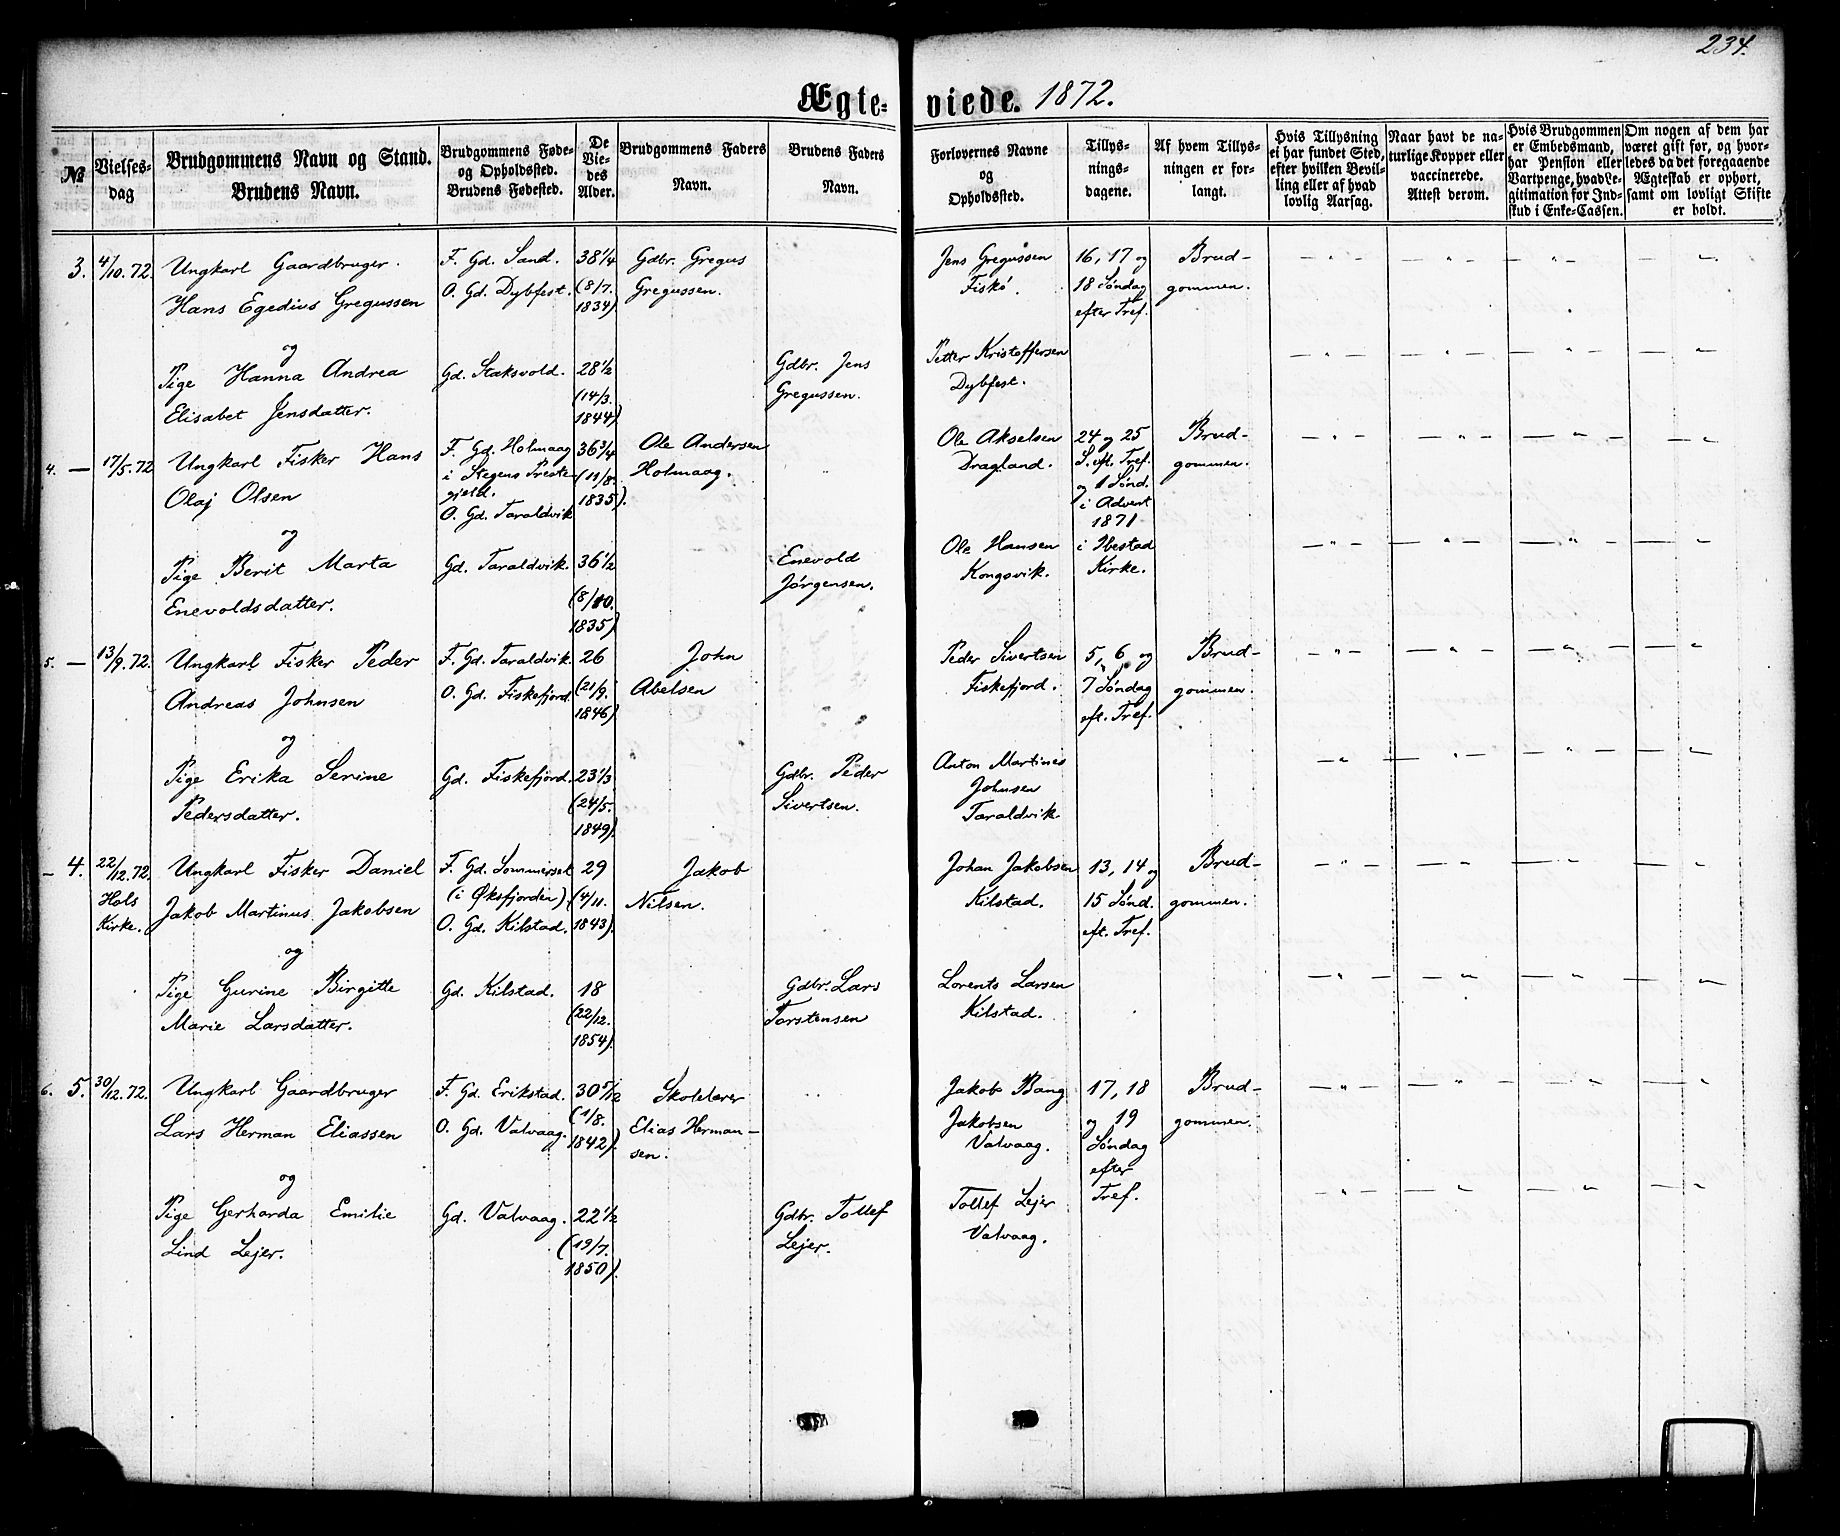 234.
Ægteviede. 1872.
№
Vielsesdag
Brudgommens Navn og Stand.
Brudens Navn.
Brudgommens Føde-
og Opholdssted.
Brudens Fødested.
De
Vie-
des
Alder.
Brudgommens Faders
Navn.
Brudens Faders
Navn.
Forlovernes Navne
og
Opholdssted.
Tillys-
nings-
dagene.
Af hvem Tillys-
ningen er for-
langt.
Hvis Tillysning
ei har fundet Sted,
efter hvilken Bevil-
ling eller af hvad
lovlig Aarsag.
Naar havt de na-
turlige Kopper eller
vaccinerede.
Attest derom.
Hvis Brudgommen
er Embedsmand,
har Pension eller
Vartpenge, hvad Le-
gitimation for Ind-
skud i Enke-Cassen.
Om nogen af dem har
været gift før, og hvor-
ledes da det foregaaende
Ægteskab er ophørt,
samt om lovligt Skifte
er holdt.
3.
4/10. 72
Ungkarl Gaardbruger.
Hans Egedius Gregussen
og
Pige Hanna Andrea
Elisabet Jensdatter.
F. Gd. Sand.
O. Gd. Dybfest.
Gd. Staksvold.
38 1/4
(8/7.
1834)
28 1/2
(14/3.
1844)
Gdbr. Gregus
Gregussen.
Gdbr. Jens
Gregussen.
Jens Gregussen
Fiskø.
Petter Kristoffersen
Dybfest.
16, 17 og
18 Søndag
efter Tref.
Brud-
gommen.
4. —
17/5. 72
Ungkarl Fisker Hans
Olaj Olsen
og
Pige Berit Marta
Enevoldsdatter.
F. Gd. Holmaag
i Stegens Præste-
gjeld.
O. Gd. Taraldvik
Gd. Taraldvik.
36 3/4
(11/8.
1835).
36 1/2
(8/10.
1835)
Ole Andersen
Holmaag.
Enevold
Jørgensen.
Ole Akselsen
Dragland.
Ole Hansen
Kongsvik.
24 og 25
S. eft. Tref.
og 1 Sønd.
i Advent
1871
i Ibestad
Kirke.
Brud-
gommen.
5. —
13/9. 72.
Ungkarl Fisker Peder
Andreas Johnsen
og
Pige Erika Serine
Pedersdatter.
F. Gd. Taraldvik.
O. Gd. Fiskefjord
Gd. Fiskefjord.
26
(21/9.
1846)
23 1/3
(24/5.
1849)
John
Abelsen
Gdbr. Peder
Sivertsen.
Peder Sivertsen
Fiskefjord.
Anton Martines
Johnsen
Taraldvik
5, 6 og
7 Søndag
eft. Tref.
Brud-
gommen.
— 4.
22/12. 72.
Hols
Kirke.
Ungkarl Fisker Daniel
Jakob Martinus Jakobsen
og
Pige Gurine Birgitte
Marie Larsdatter.
F. Gd. Sommerset
(i Øksfjorden)
O. Gd. Kilstad.
Gd. Kilstad.
29
(4/11.
1843).
18
(22/12.
1854)
Jakob
Nilsen.
Gdbr. Lars
Torstensen
Johan Jakobsen
Kilstad.
Lorents Larsen
Kilstad.
13, 14 og
15 Sønd.
eft. Tref.
Brud-
gommen.
6. 5.
30/12. 72.
Ungkarl Gaardbruger
Lars Herman Eliassen
og
Pige Gerharda Emilie
Lind Lejer.
F. Gd. Erikstad.
O. Gd. Valvaag.
Gd. Valvaag.
30 5/12
(1/8.
1842)
22 1/2
(19/7.
1850).
Skolelærer
Elias Herman-
sen.
Gdbr. Tollef
Lejer.
Jakob Bang
Jakobsen
Valvaag.
Tollef Lejer
Valvaag.
17, 18
og 19
Søndag
efter
Tref.
Brud-
gommen.